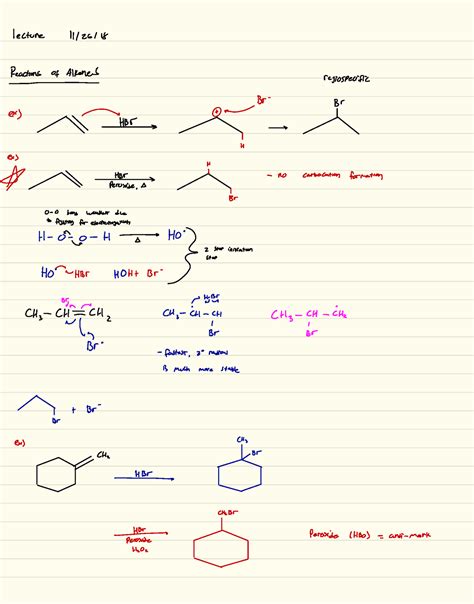 lecture 11/26/18
Reactions of Alkenes
regiospecific
ex)
HBr
Br⁻
H
Br
ex)
HBr
Peroxide, Δ
H
Br
- no carbocation formation
O-O bond weakest due
to fighting for
H-O-O-H
Δ
HO·
2 step initiation
step
HO· HBr HOH + Br·
Br
CH₃ - CH = CH₂
Br·
H Br
CH₃ - CH - CH
Br
CH₃ - CH - CH₂
Br
- fastest, 2° radical
is much more stable
Br + Br·
ex)
CH₂
HBr
CH₃
Br
HBr
Peroxide
H₂O₂
CH₂Br
Peroxide (HBr) = anti-mark